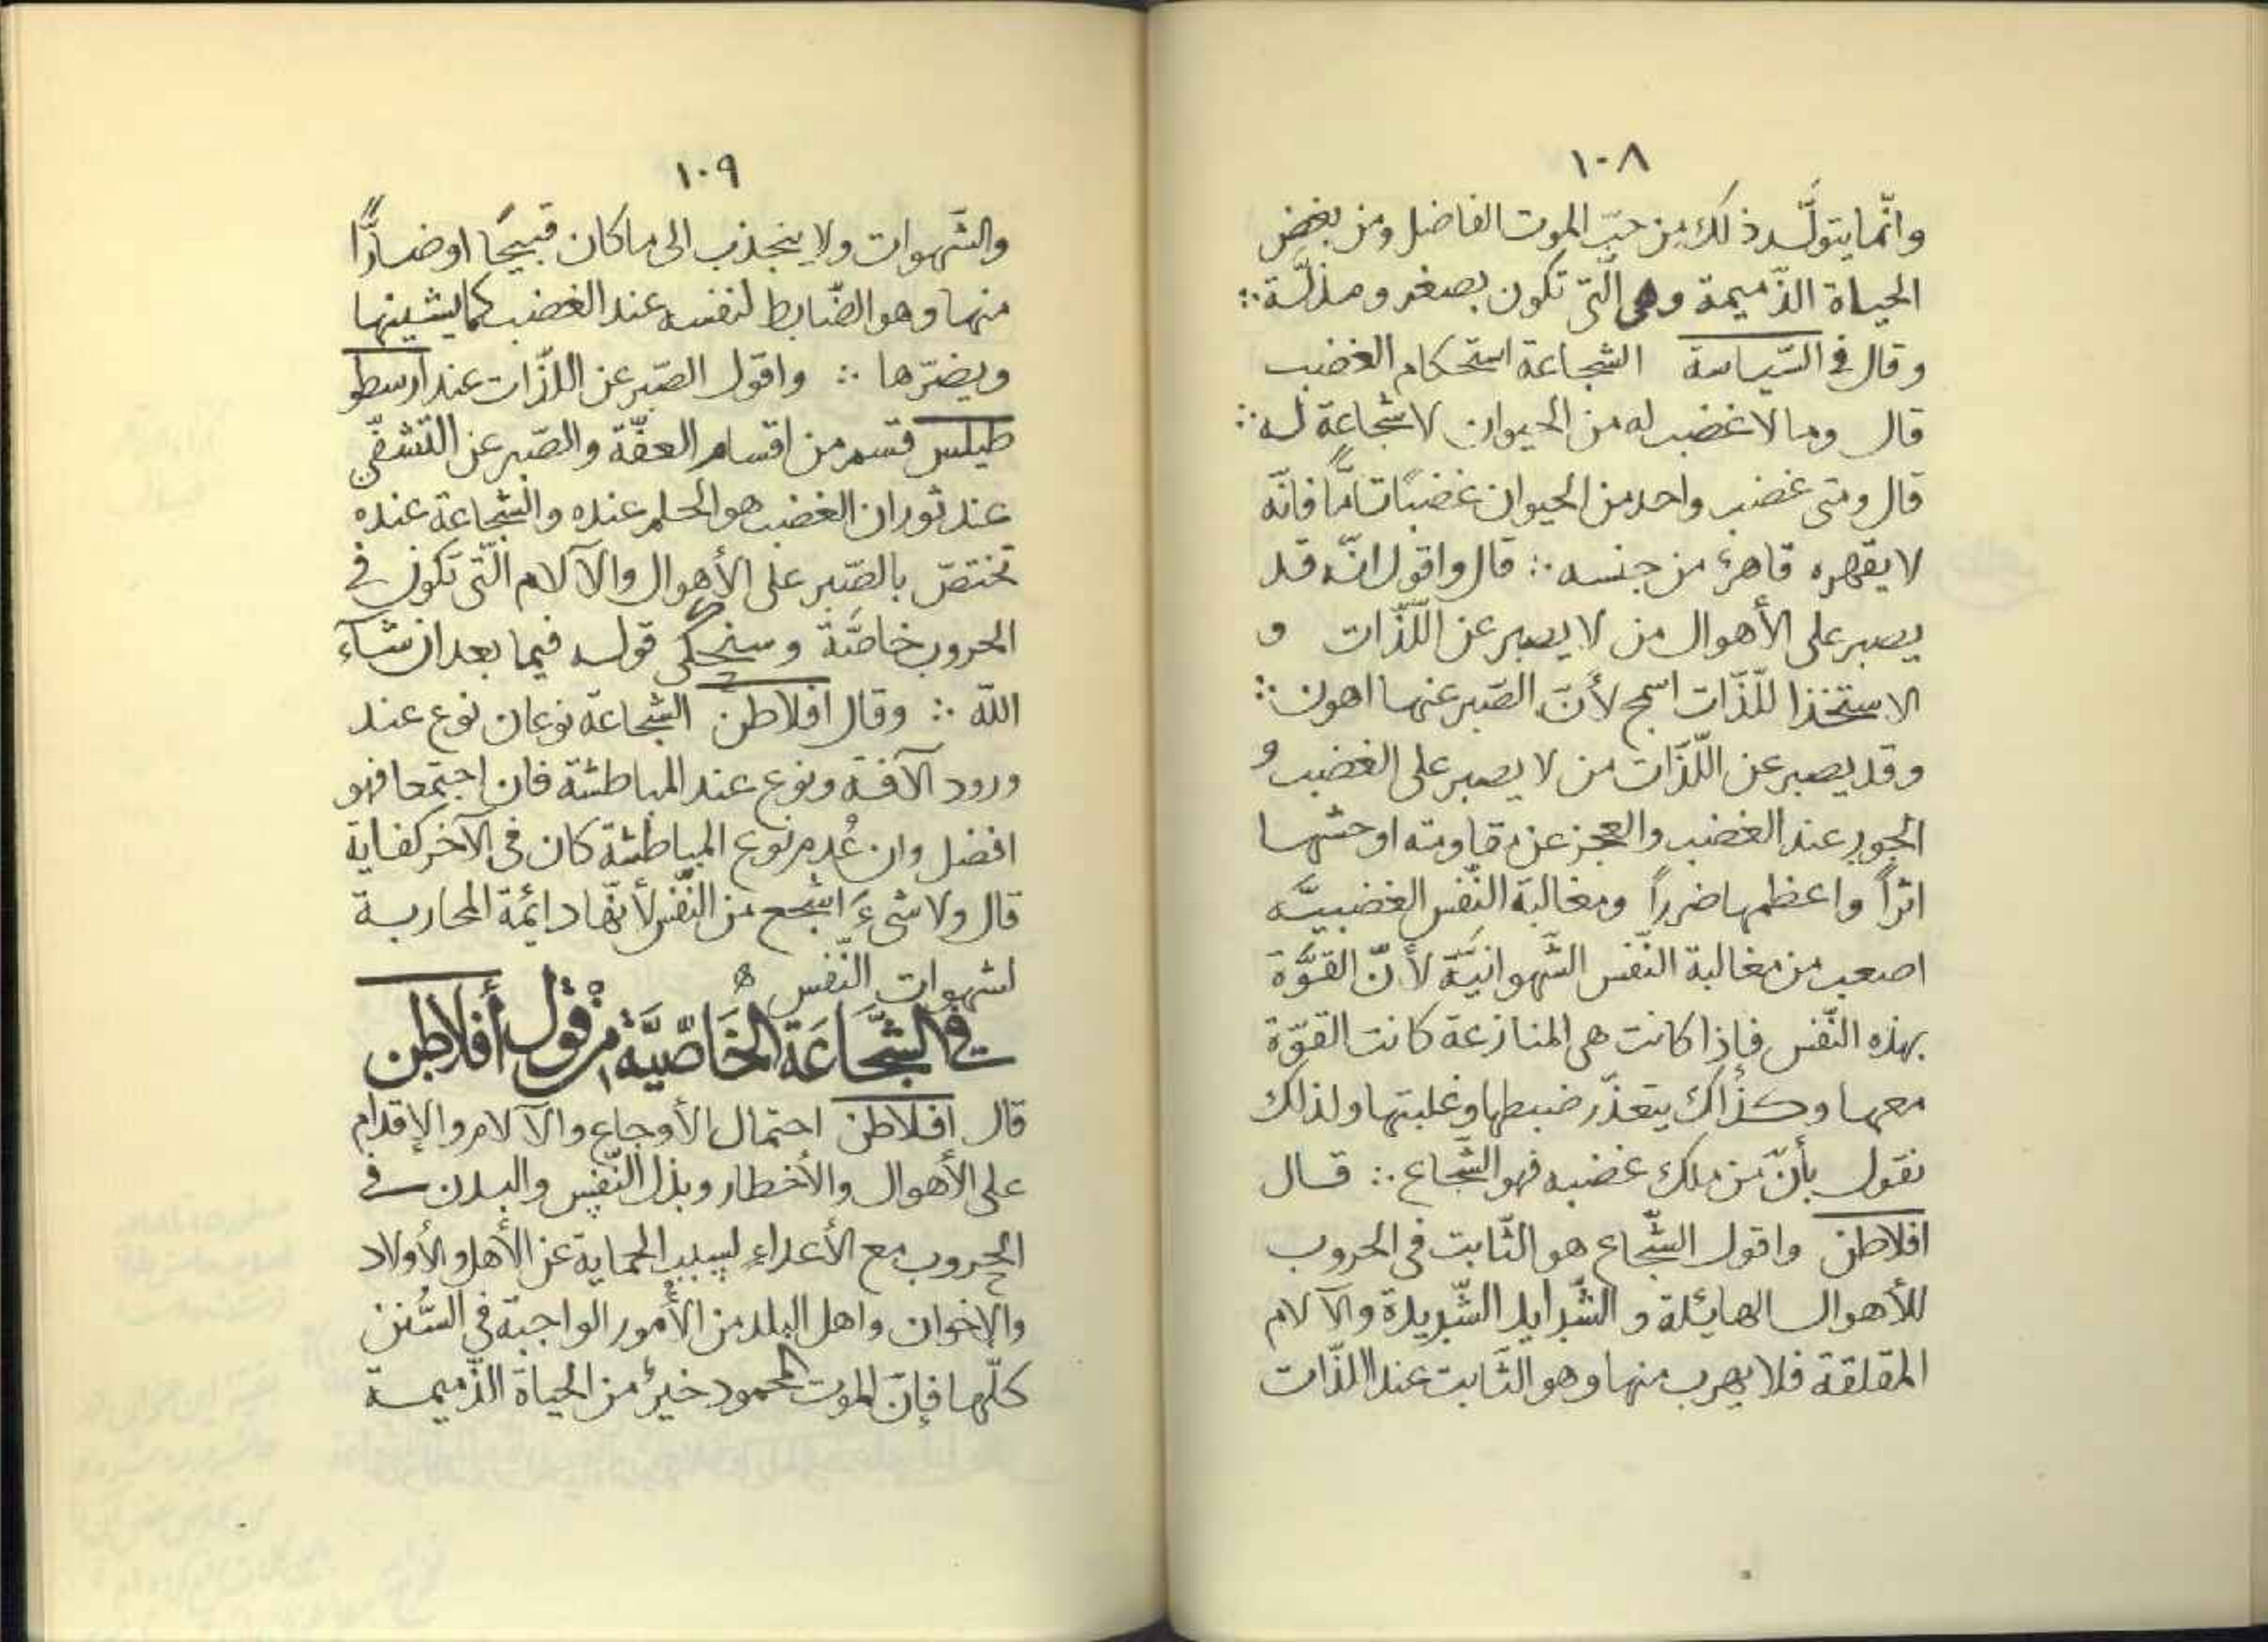 ١٠٨
وانّما يتولّد ذلك من حبّ الموت الفاضل ومن بغض
الحياة الذّميمة وهى الّتى تكون بصغر ومذلّة ∴
وقال فى السّياسة الشجاعة استحكام الغضب
قال وما لا غضب له من الحيوان لا شجاعة له ∴
قال ومتى غضب واحد من الحيوان غضبًا تامًّا فانّه
لا يقهره قاهرٌ من جنسه ∴ قال واقول انّه قد
يصبر على الأهوال من لا يصبر عن اللّذّات و
الاستخذا للّذّات اسمج لأنّ الصّبر عنها اهون ∴
وقد يصبر عن اللّذّات من لا يصبر على الغضب و
الجور عند الغضب والعجز عن مقاومته اوحشها
اثراً واعظمها ضرراً ومغالبة النّفس الغضبيّة
اصعب من مغالبة النّفس الشّهوانيّة لأنّ القوّة
بهذه النّفس فإذا كانت هى المنازعة كانت القوّة
معها وكذاك يتعذّر ضبطها وغلبتها ولذلك
نقول بأنّ من ملك غضبه فهو الشّجاع ∴ قال
افلاطن واقول الشّجاع هو الثّابت فى الحروب
للأهوال الهايئلة و الشّدايد الشّديدة والآلام
المقلقة فلا يهرب منها وهو الثّابت عند اللذّات
١٠٩
والشّهوات ولا ينجذب الى ما كان قبيحًا او ضارًّا
منها وهو الضّابط لنفسه عند الغضب كما يشينها
ويضرّها ∴ واقول الصّبر عن اللذّات عند ارسطو
طيلس قسم من اقسام العفّة والصّبر عن التّشفّى
عند ثوران الغضب هو الحلم عنده والشّجاعة عنده
تختصّ بالصّبر على الأهوال والآلام الّتى تكون فى
الحروب خاصّة وسنحكى قوله فيما بعد ان شآء
اللّه ∴ وقال افلاطن الشّجاعة نوعان نوع عند
ورود الآفة ونوع عند المباطشة فان اجتمعا فهو
افضل وان عُدم نوع المباطشة كان فى الآخر كفاية
قال ولا شىءَ اشجع من النّفس لأنّها دائمة المحاربة
لشهوات النّفس ه
فى الشّجَاعَة الخَاصّيَّة من قول أفلاطن
قال افلاطن احتمال الأوجاع والآلام والإقدام
على الأهوال والأخطار وبذل النّفس والبدن فى
الحروب مع الأعداء لسبب الحماية عن الأهل والأولاد
والإخوان واهل البلد من الأمور الواجبة فى السُّنن
كلّها فإنّ الموت المحمود خيرٌ من الحياة الذّميمة